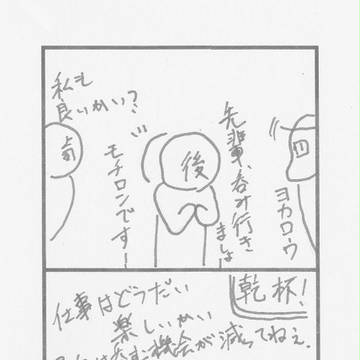 先輩、呑み行き
ましょ
ヨカロウ
後
モチロンですー
私も
良いかい？
乾杯！
仕事はどうだい
楽しいかい
呑む機会が減ってねぇ